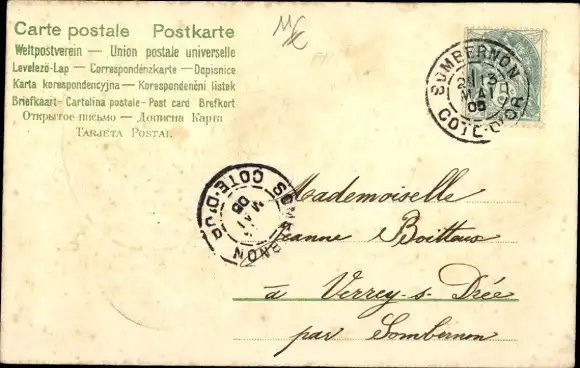 Carte postale Postkarte
Weltpostverein — Union postale universelle
Levelező-Lap — Correspondenzkarte — Dopisnice
Karta korespondencyjna — Korespondenční listek
Briefkaart — Cartolina postale — Post card Brefkort
Открытое письмо — Дописна Карта
TARJETA POSTAL
SOMBERNON
13
MAI
05
COTE-D'OR
SOMBERNON
MAI
05
COTE-D'OR
Mademoiselle
Jeanne Boitteux
à Verrey-s-Drée
par Sombernon